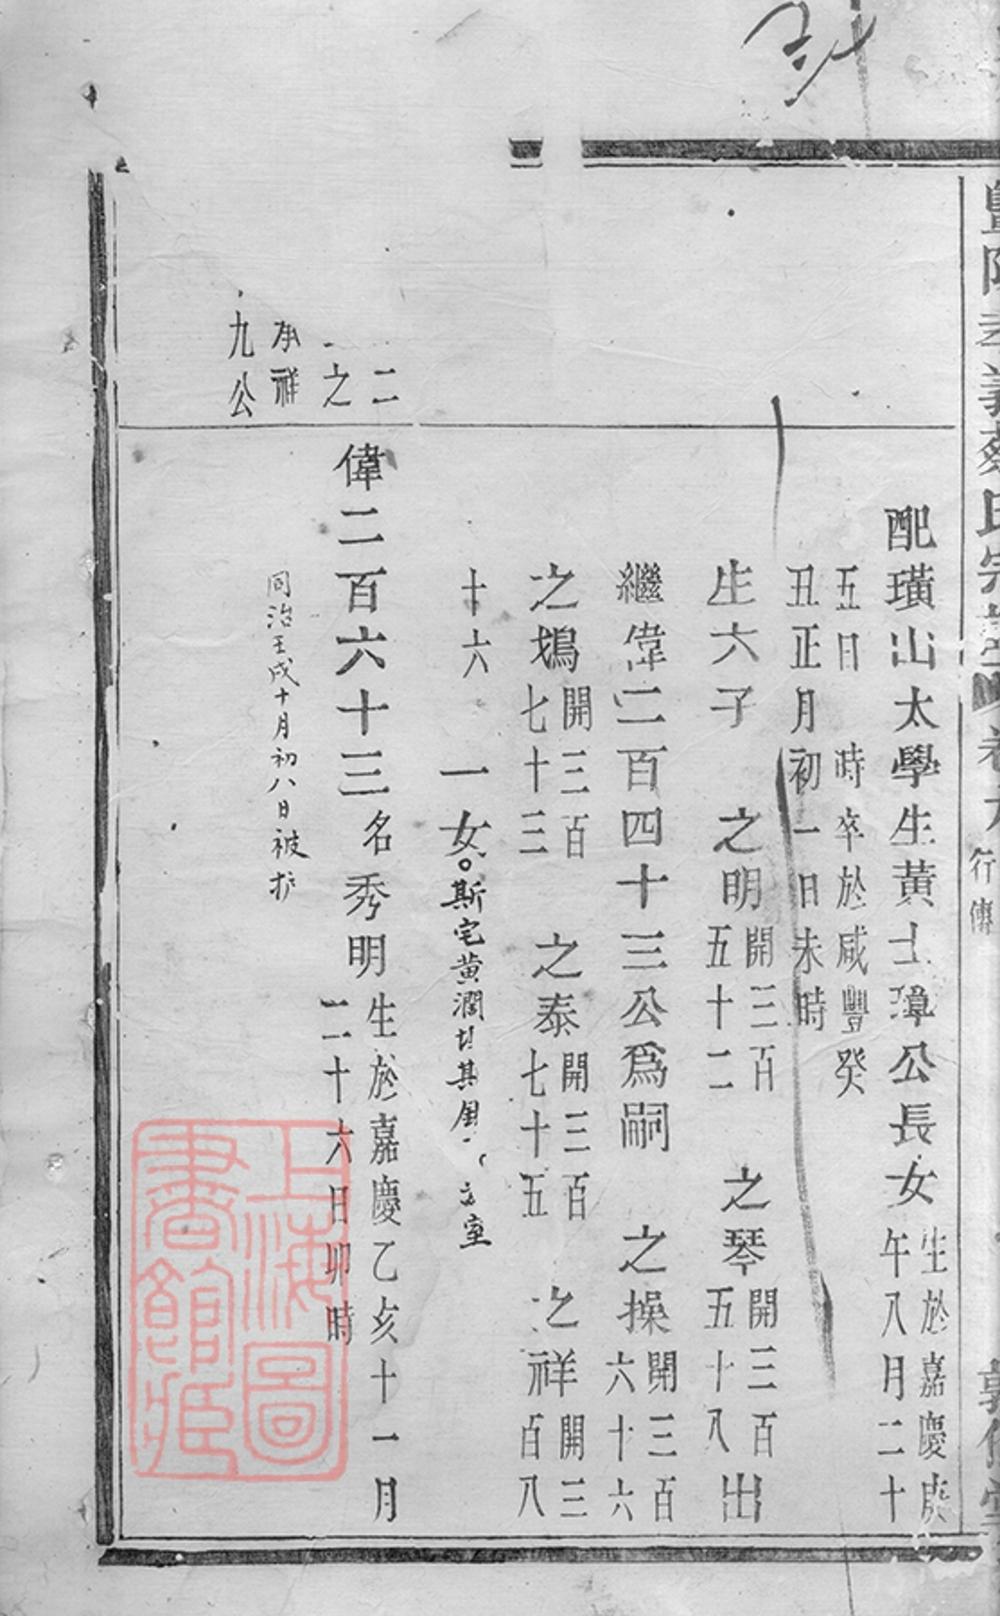 配璜山太學生黃士璋公長女生於嘉慶庚午八月二十
五日 時卒於咸豐癸丑正月初一日未時
生六子 之明開三百五十二 之琴開三百五十八出
繼偉二百四十三公爲嗣 之操開三百六十六
之鴂開三百七十三 之泰開三百七十五 之祥開三百八
十六 一女。斯宅黃潤
室
二
之
承祥
九公
偉二百六十三名秀明生於嘉慶乙亥十一月二十六日卯時
同治壬戌十月初八日被擄
卷九
行傳
上海圖書館藏